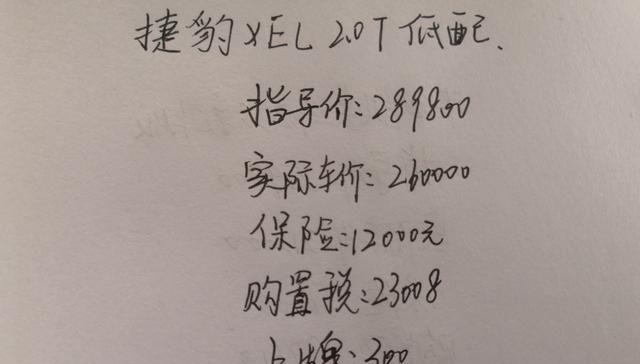 捷豹XEL 2.0T 低配.
指导价:289800
实际车价:260000
保险:12000元
购置税:23008
上牌:300